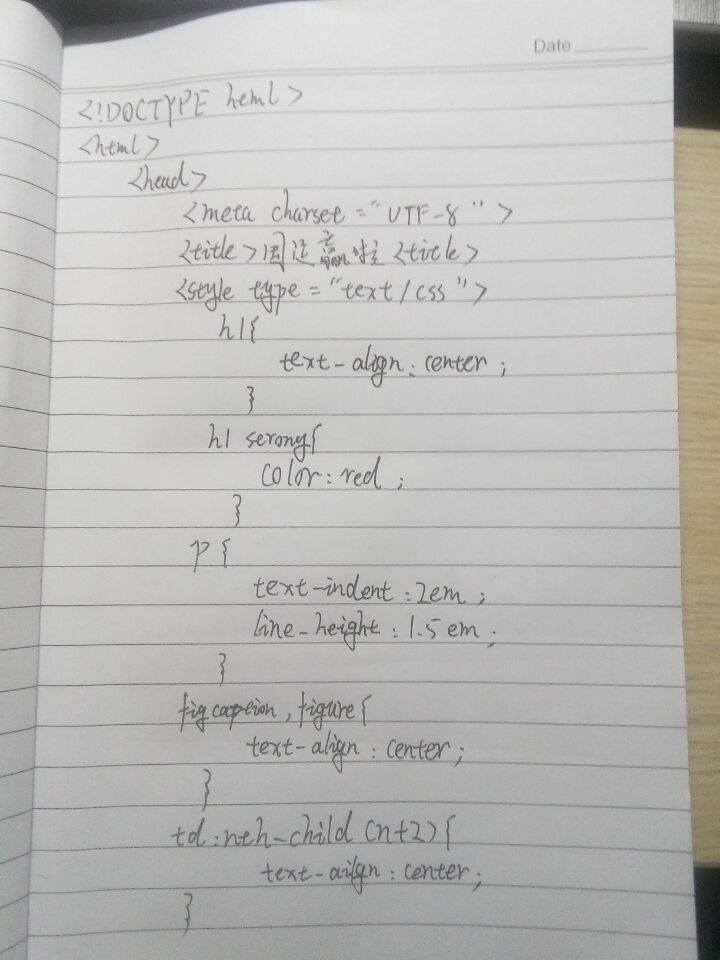 Date
<!DOCTYPE html>
<html>
<head>
<meta charset="UTF-8">
<title> 赢 <title>
<style type="text/css">
h1{
text-align:center;
}
h1 strong{
color:red;
}
p{
text-indent:2em;
line-height:1.5em;
}
figcaption,figure{
text-align:center;
}
td:nth-child(n+2){
text-ailgn:center;
}